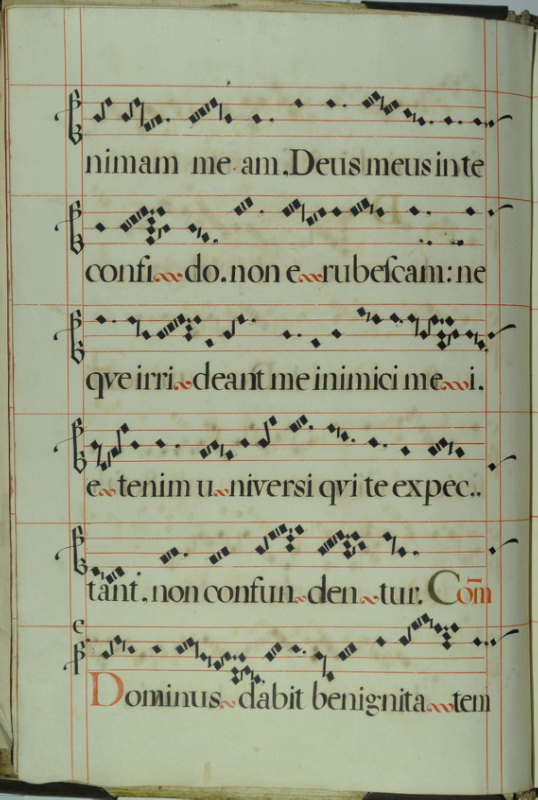 nimam me am. Deus meus in te
confi do. non e rubeſcam: ne
qve irri deant me inimici me i.
etenim u niversi qvi te expec..
tant. non confun den tur. Com̄
C
Dominus dabit benignita tem